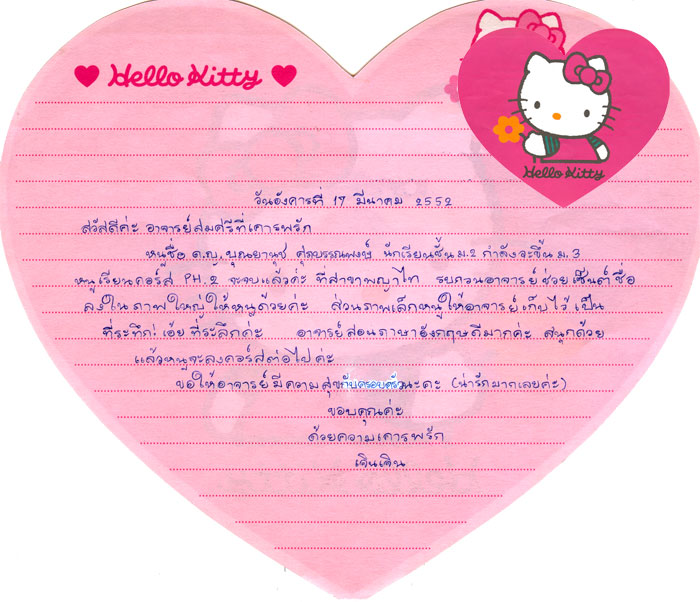 Hello Kitty
Hello Kitty
วันอังคารที่ 17 มีนาคม 2552
สวัสดีค่ะ อาจารย์สมศรีที่เคารพรัก
หนูชื่อ ด.ญ. บุณยานุช ศุภบรรณพงษ์ นักเรียนชั้น ม.2 กำลังจะขึ้น ม.3
หนูเรียนคอร์ส PH.2 จะจบแล้วค่ะ ที่สาขาพญาไท รบกวนอาจารย์ช่วยเซ็นต์ชื่อ
ลงในภาพใหญ่ให้หนูด้วยค่ะ ส่วนภาพเล็กหนูให้อาจารย์เก็บไว้เป็น
ที่ระทึก! เอ้ย ที่ระลึกค่ะ อาจารย์สอนภาษาอังกฤษดีมากค่ะ สนุกด้วย
แล้วหนูจะลงคอร์สต่อไปค่ะ
ขอให้อาจารย์มีความสุขกับครอบครัวนะคะ (น่ารักมากเลยค่ะ)
ขอบคุณค่ะ
ด้วยความเคารพรัก
เตินเติน